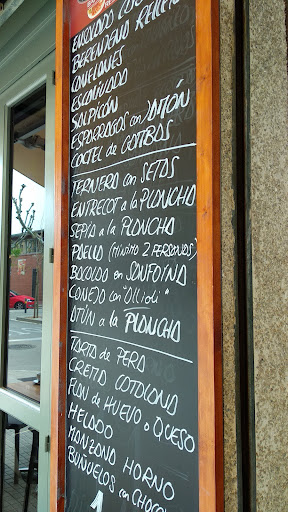 BERENJENA RELLENA
CANELONES
ESCALIVADA
SALPICÓN
ESPARRAGOS con JAMÓN
COCTEL de GAMBAS
TERNERA con SETAS
ENTRECOT a la PLANCHA
SEPIA a la PLANCHA
PAELLA (MINIMO 2 PERSONAS)
BACALAO en SANFAINA
CONEJO con "Allioli"
ATÚN a la PLANCHA
TARTA de PERA
CREMA CATALANA
FLAN de HUEVO o QUESO
HELADO
MANZANA HORNO
BUÑUELOS con CHOCO